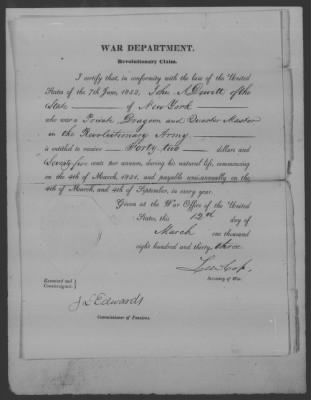 WAR DEPARTMENT.
Revolutionary Claim.
I certify that, in conformity with the law of the United
States of the 7th June, 1832, John A. Dewitt of the
State of New York
who was a Private, Dragoon and Quarter Master
in the Revolutionary Army
is entitled to receive Forty two dollars and
Seventy five cents per annum, during his natural life, commencing
on the 4th of March, 1831, and payable semi-annually on the
4th of March, and 4th of September, in every year.
Given at the War Office of the United
States, this 12th day of
March one thousand
eight hundred and thirty three
Lew Cass.
Secretary of War.
Examined and
Countersigned.
J L Edwards
Commissioner of Pensions.